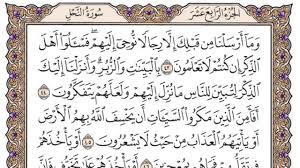 الجزء الرابع عشر
سورة النحل
وَمَا أَرْسَلْنَا مِن قَبْلِكَ إِلَّا رِجَالًا نُّوحِي إِلَيْهِمْ فَسْـَٔلُوٓا۟ أَهْلَ
ٱلذِّكْرِ إِن كُنتُمْ لَا تَعْلَمُونَ ٤٣ بِٱلْبَيِّنَٰتِ وَٱلزُّبُرِ وَأَنزَلْنَآ إِلَيْكَ
ٱلذِّكْرَ لِتُبَيِّنَ لِلنَّاسِ مَا نُزِّلَ إِلَيْهِمْ وَلَعَلَّهُمْ يَتَفَكَّرُونَ ٤٤
أَفَأَمِنَ ٱلَّذِينَ مَكَرُوا۟ ٱلسَّيِّـَٔاتِ أَن يَخْسِفَ ٱللَّهُ بِهِمُ ٱلْأَرْضَ
أَوْ يَأْتِيَهُمُ ٱلْعَذَابُ مِنْ حَيْثُ لَا يَشْعُرُونَ ٤٥ أَوْ يَأْخُذَهُمْ